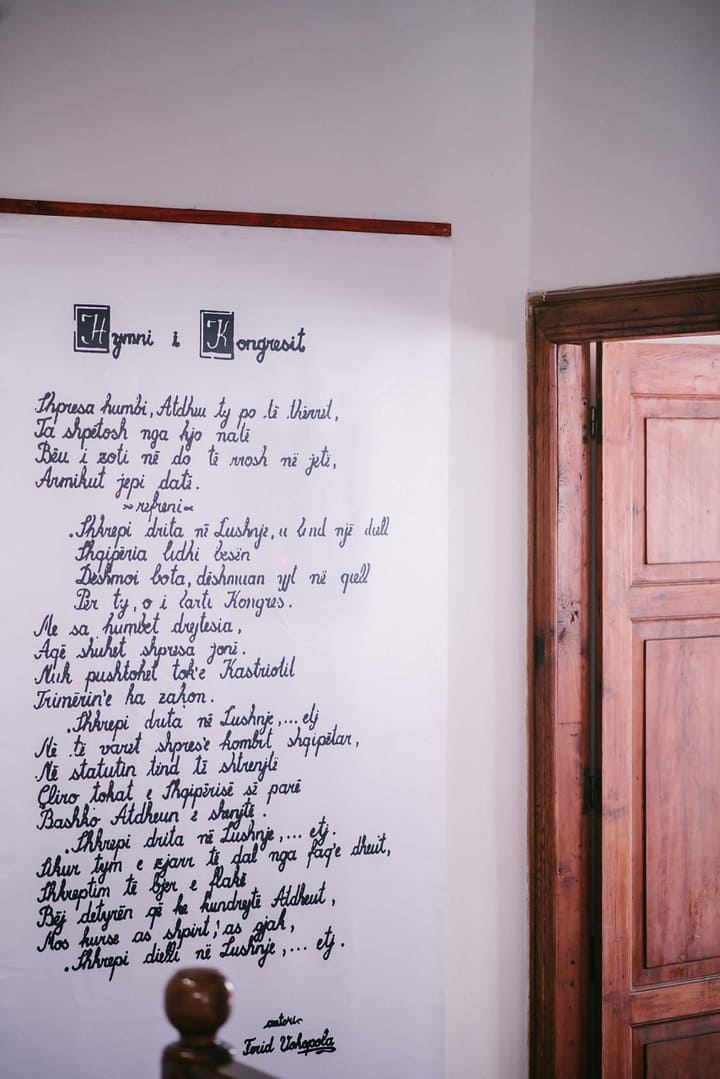 Hymni i Kongresit
Shpresa humbi, Atdheu ty po të thërret,
Ta shpëtosh nga kjo natë
Bëu i zoti në do të rrosh në jetë,
Armikut jepi datë.
~refreni~
.Shkrepi drita në Lushnje, u lind një diell
Shqipëria lidhi besën
Dëshmoi bota, dëshmuan yjt në qiell
Për ty, o i lartë Kongres.
Me sa humbet drejtësia,
Aqë shuhet shpresa jonë.
Nuk pushtohet tok'e Kastriotit
Trimërin'e ka zakon.
.Shkrepi drita në Lushnje,... etj
Në të varet shpres'e kombit shqipëtar,
Në statutin tënd të shtrenjtë
Çliro tokat e Shqipërisë së parë
Bashko Atdheun e shenjtë.
.Shkrepi drita në Lushnje,... etj.
Sikur tym e zjarr të dal nga faq'e dheut,
Shkreptim të bjer e flakë
Bëj detyrën që ke kundrejtë Atdheut,
Mos kurse as shpirt, as gjak,
.Shkrepi dielli në Lushnje,... etj.
autori-
Ferid Vokopola